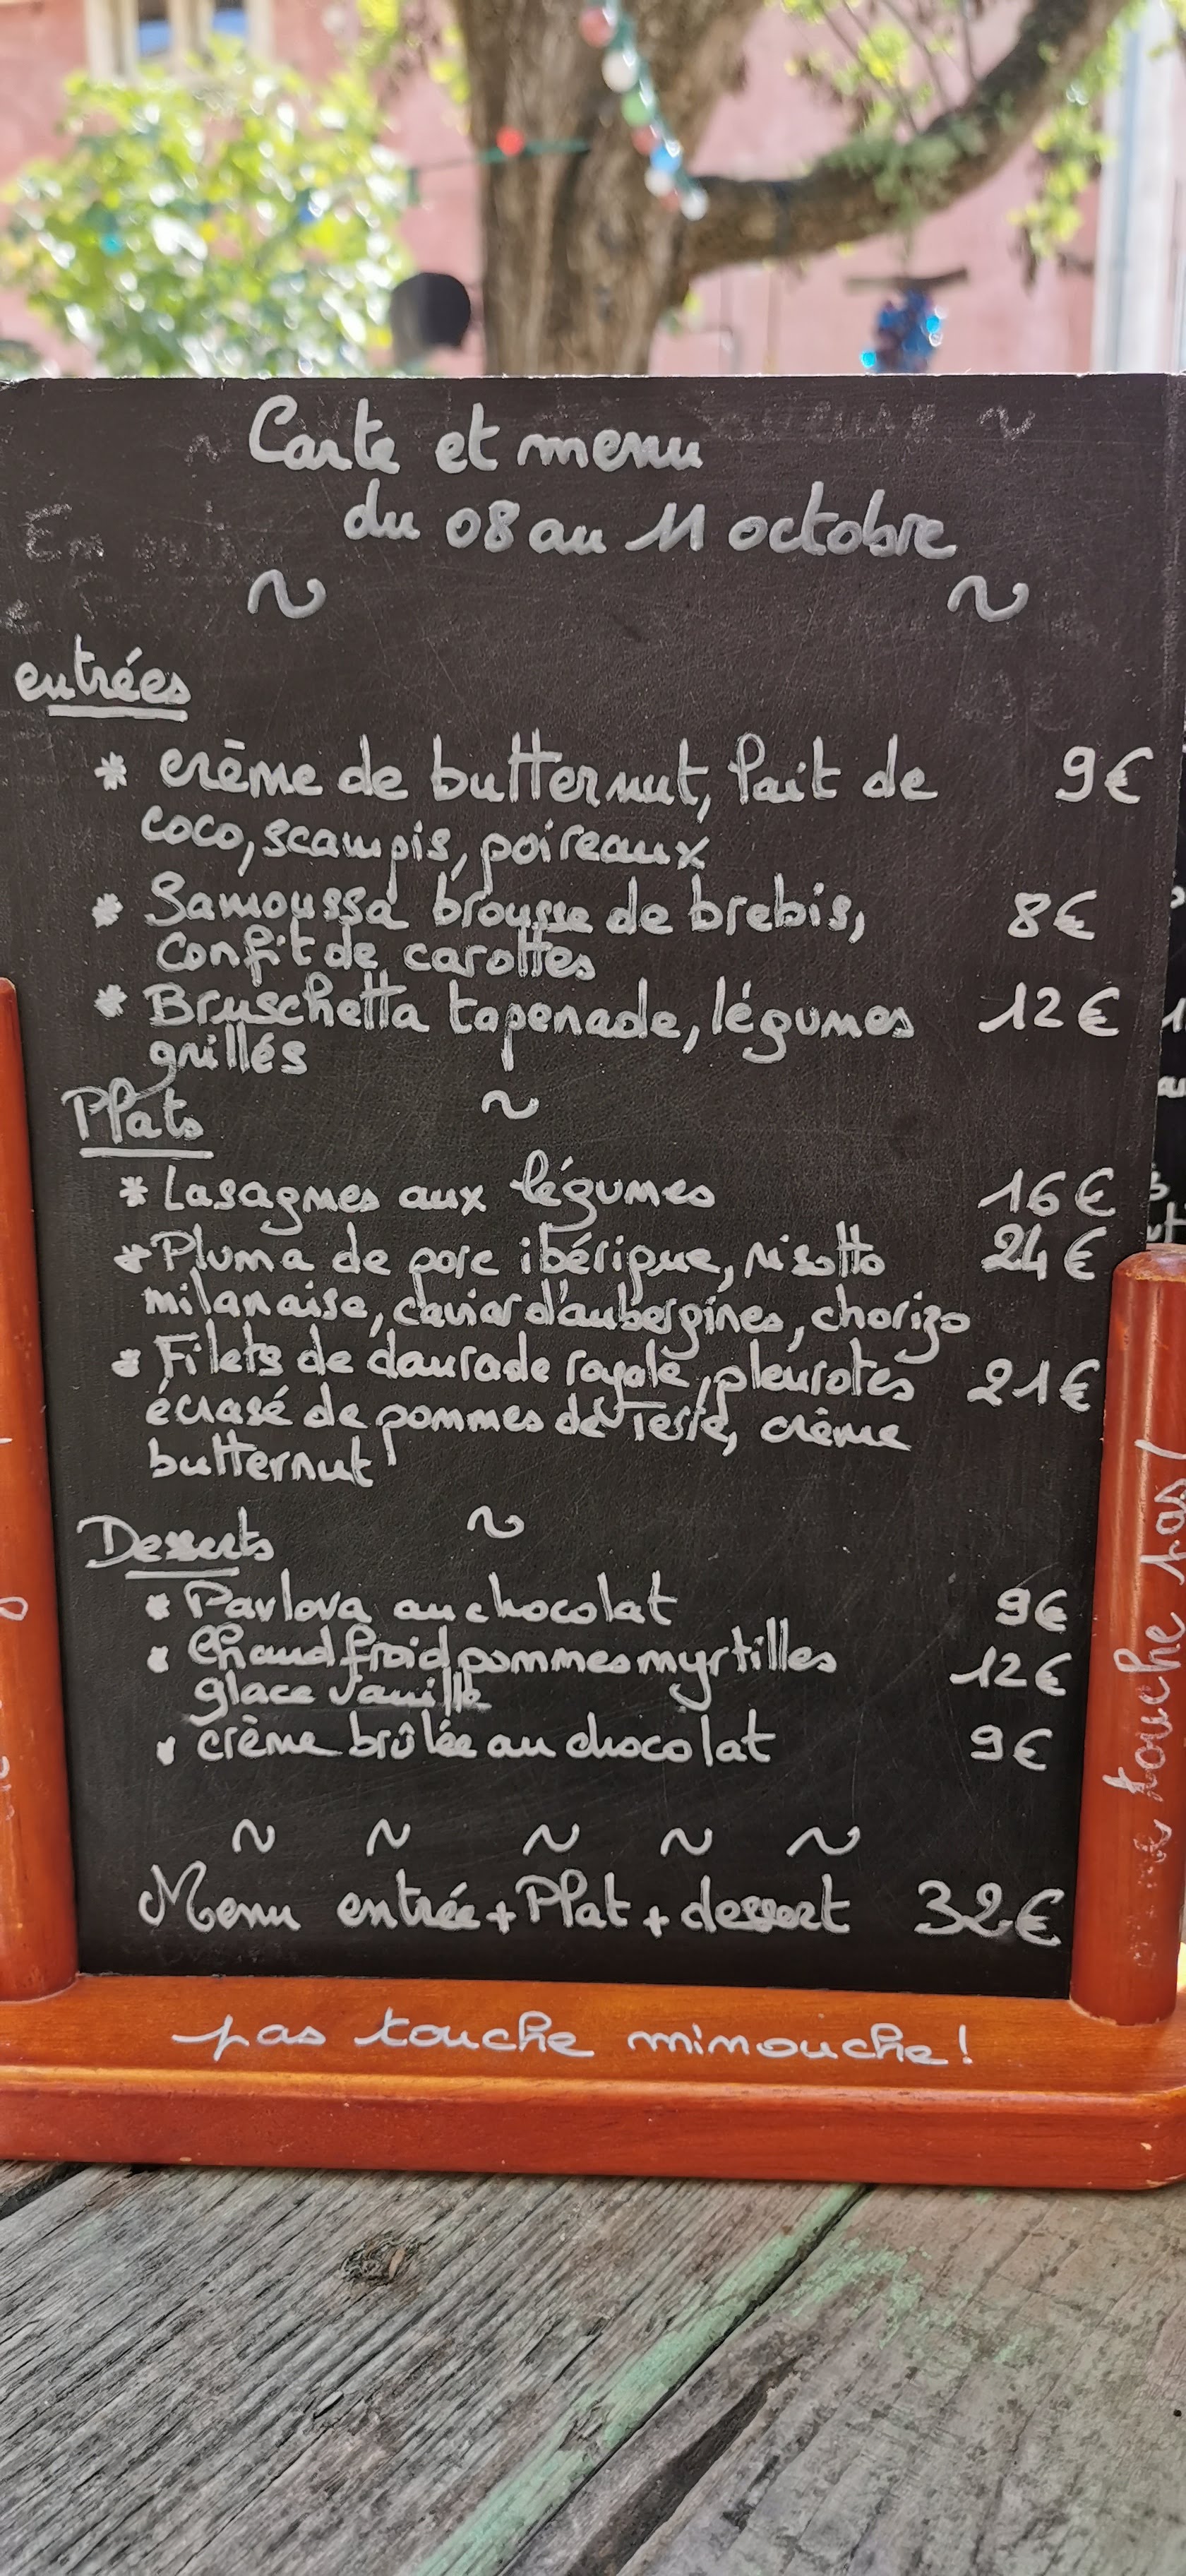 Carte et menu
du 08 au 11 octobre
~ ~
entrées
* crème de butternut, lait de 9€
coco, scampis, poireaux
* Samoussa brousse de brebis, 8€
confit de carottes
* Bruschetta tapenade, légumes 12€
grillés
~
Plats
* Lasagnes aux légumes 16€
* Pluma de porc ibérique, risotto 24€
milanaise, caviar d'aubergines, chorizo
* Filets de daurade royale, pleurotes 21€
écrasé de pommes de Terre, crème
butternut
~
Desserts
* Pavlova au chocolat 9€
* Chaud froid pommes myrtilles 12€
glace vanille
* crème brûlée au chocolat 9€
~ ~ ~ ~ ~
Menu entrée + Plat + dessert 32€
pas touche minouche!
touche pas!